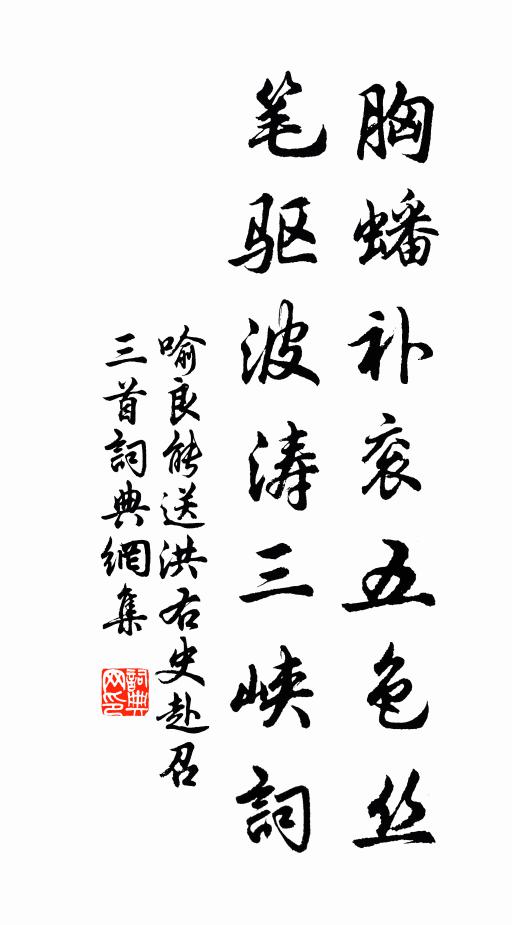 胸蟠补衮五色丝
笔驱波涛三峡詞
喻良能送洪右史赴召
三首詞典網集
詞典
网印